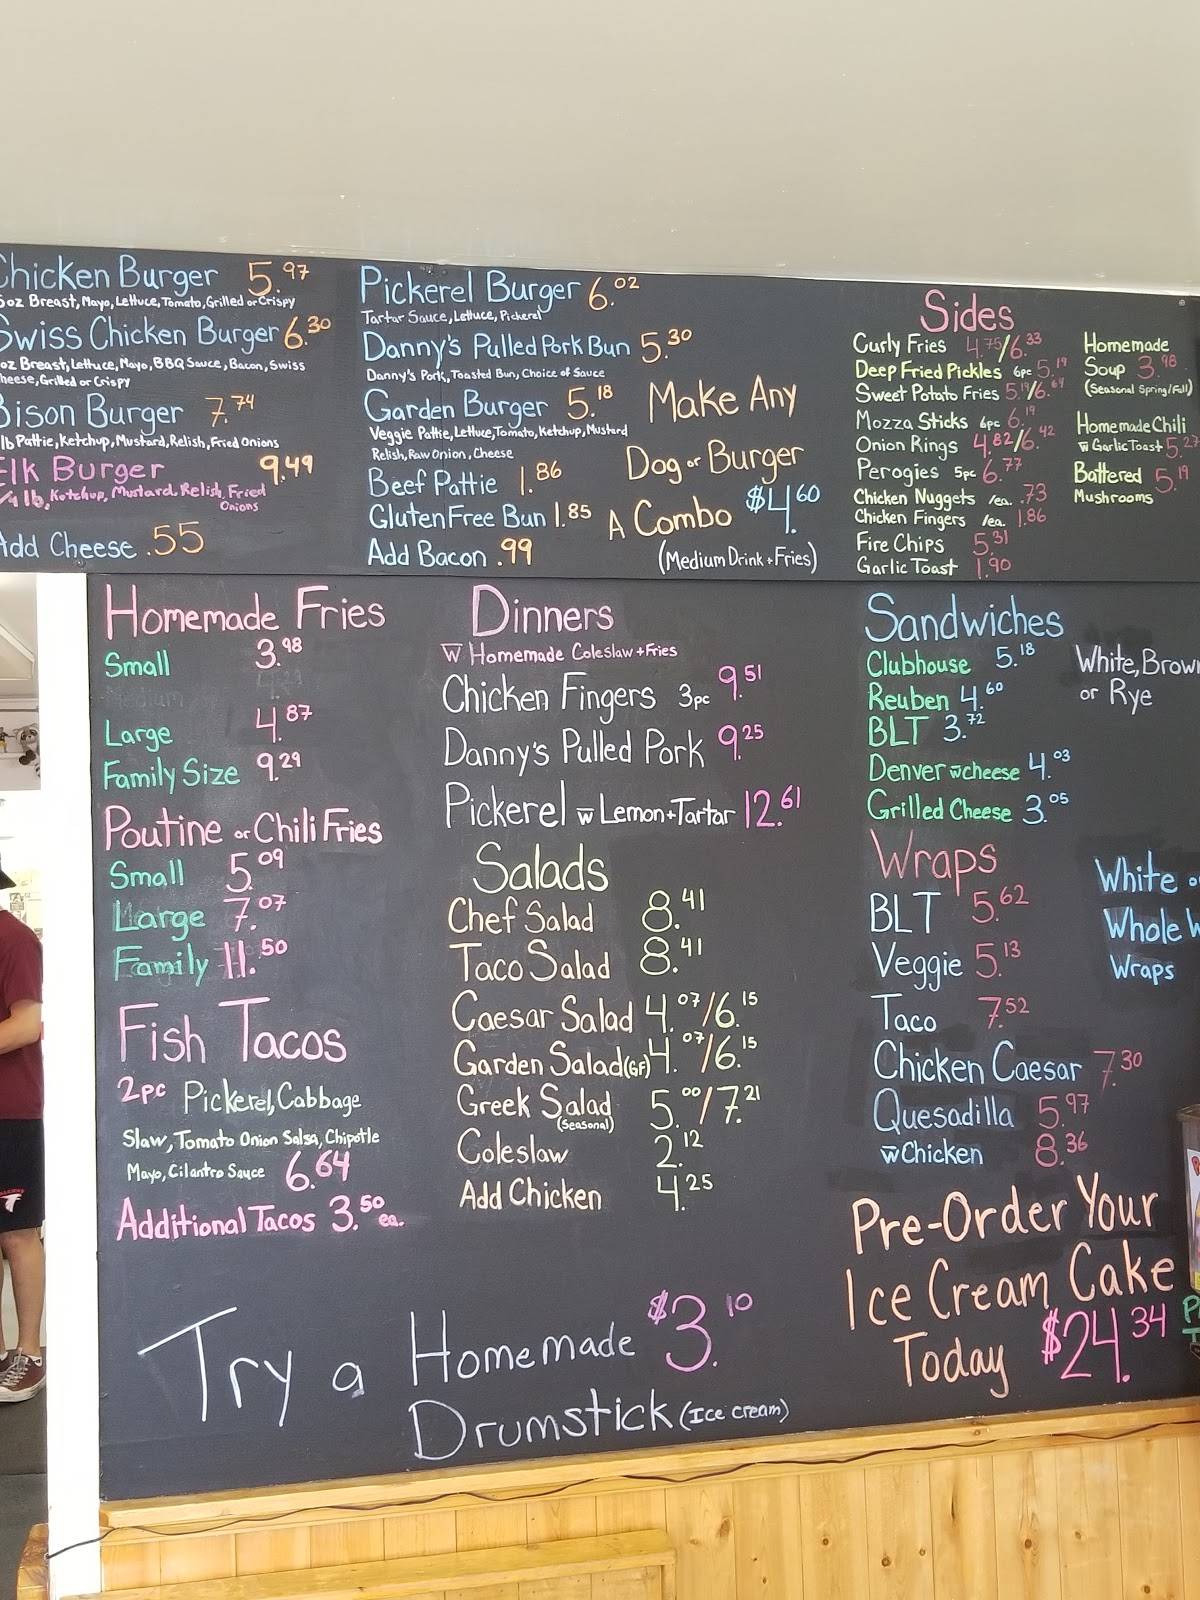 Chicken Burger 5.97
oz Breast, Mayo, Lettuce, Tomato, Grilled or Crispy
Swiss Chicken Burger 6.30
oz Breast, Lettuce, Mayo, BBQ Sauce, Bacon, Swiss
heese, Grilled or Crispy
Bison Burger 7.74
lb Pattie, Ketchup, Mustard, Relish, Fried Onions
Elk Burger 9.49
1/4 lb, Ketchup, Mustard, Relish, Fried
Onions
Add Cheese .55
Pickerel Burger 6.02
Tartar Sauce, Lettuce, Pickerel
Danny's Pulled Pork Bun 5.30
Danny's Pork, Toasted Bun, Choice of Sauce
Garden Burger 5.18
Veggie Pattie, Lettuce, Tomato, Ketchup, Mustard
Relish, Raw Onion, Cheese
Beef Pattie 1.86
Gluten Free Bun 1.85
Add Bacon .99
Make Any
Dog or Burger
A Combo $4.60
(Medium Drink + Fries)
Sides
Curly Fries 4.75/6.33
Deep Fried Pickles 6pc 5.19
Sweet Potato Fries 5.19/6.69
Mozza Sticks 6pc 6.19
Onion Rings 4.82/6.42
Perogies 5pc 6.77
Chicken Nuggets /ea. .73
Chicken Fingers /ea. 1.86
Fire Chips 5.31
Garlic Toast 1.90
Homemade
Soup 3.98
(Seasonal Spring/Fall)
Homemade Chili
w Garlic Toast 5.27
Battered 5.19
Mushrooms
Homemade Fries
Small 3.98
Medium 4.29
Large 4.87
Family Size 9.29
Poutine or Chili Fries
Small 5.09
Large 7.07
Family 11.50
Fish Tacos
2pc Pickerel, Cabbage
Slaw, Tomato Onion Salsa, Chipotle
Mayo, Cilantro Sauce 6.64
Additional Tacos 3.50 ea.
Dinners
w Homemade Coleslaw + Fries
Chicken Fingers 3pc 9.51
Danny's Pulled Pork 9.25
Pickerel w Lemon + Tartar 12.61
Salads
Chef Salad 8.41
Taco Salad 8.41
Caesar Salad 4.07/6.15
Garden Salad (GF) 4.07/6.15
Greek Salad 5.00/7.21
(Seasonal)
Coleslaw 2.12
Add Chicken 4.25
Sandwiches
Clubhouse 5.18
Reuben 4.60
BLT 3.72
Denver w cheese 4.03
Grilled Cheese 3.05
White, Brown
or Rye
Wraps
BLT 5.62
Veggie 5.13
Taco 7.52
Chicken Caesar 7.30
Quesadilla 5.97
w Chicken 8.36
White o
Whole W
Wraps
Pre-Order Your
Ice Cream Cake
Today $24.34
Try a Homemade $3.10
Drumstick (Ice cream)